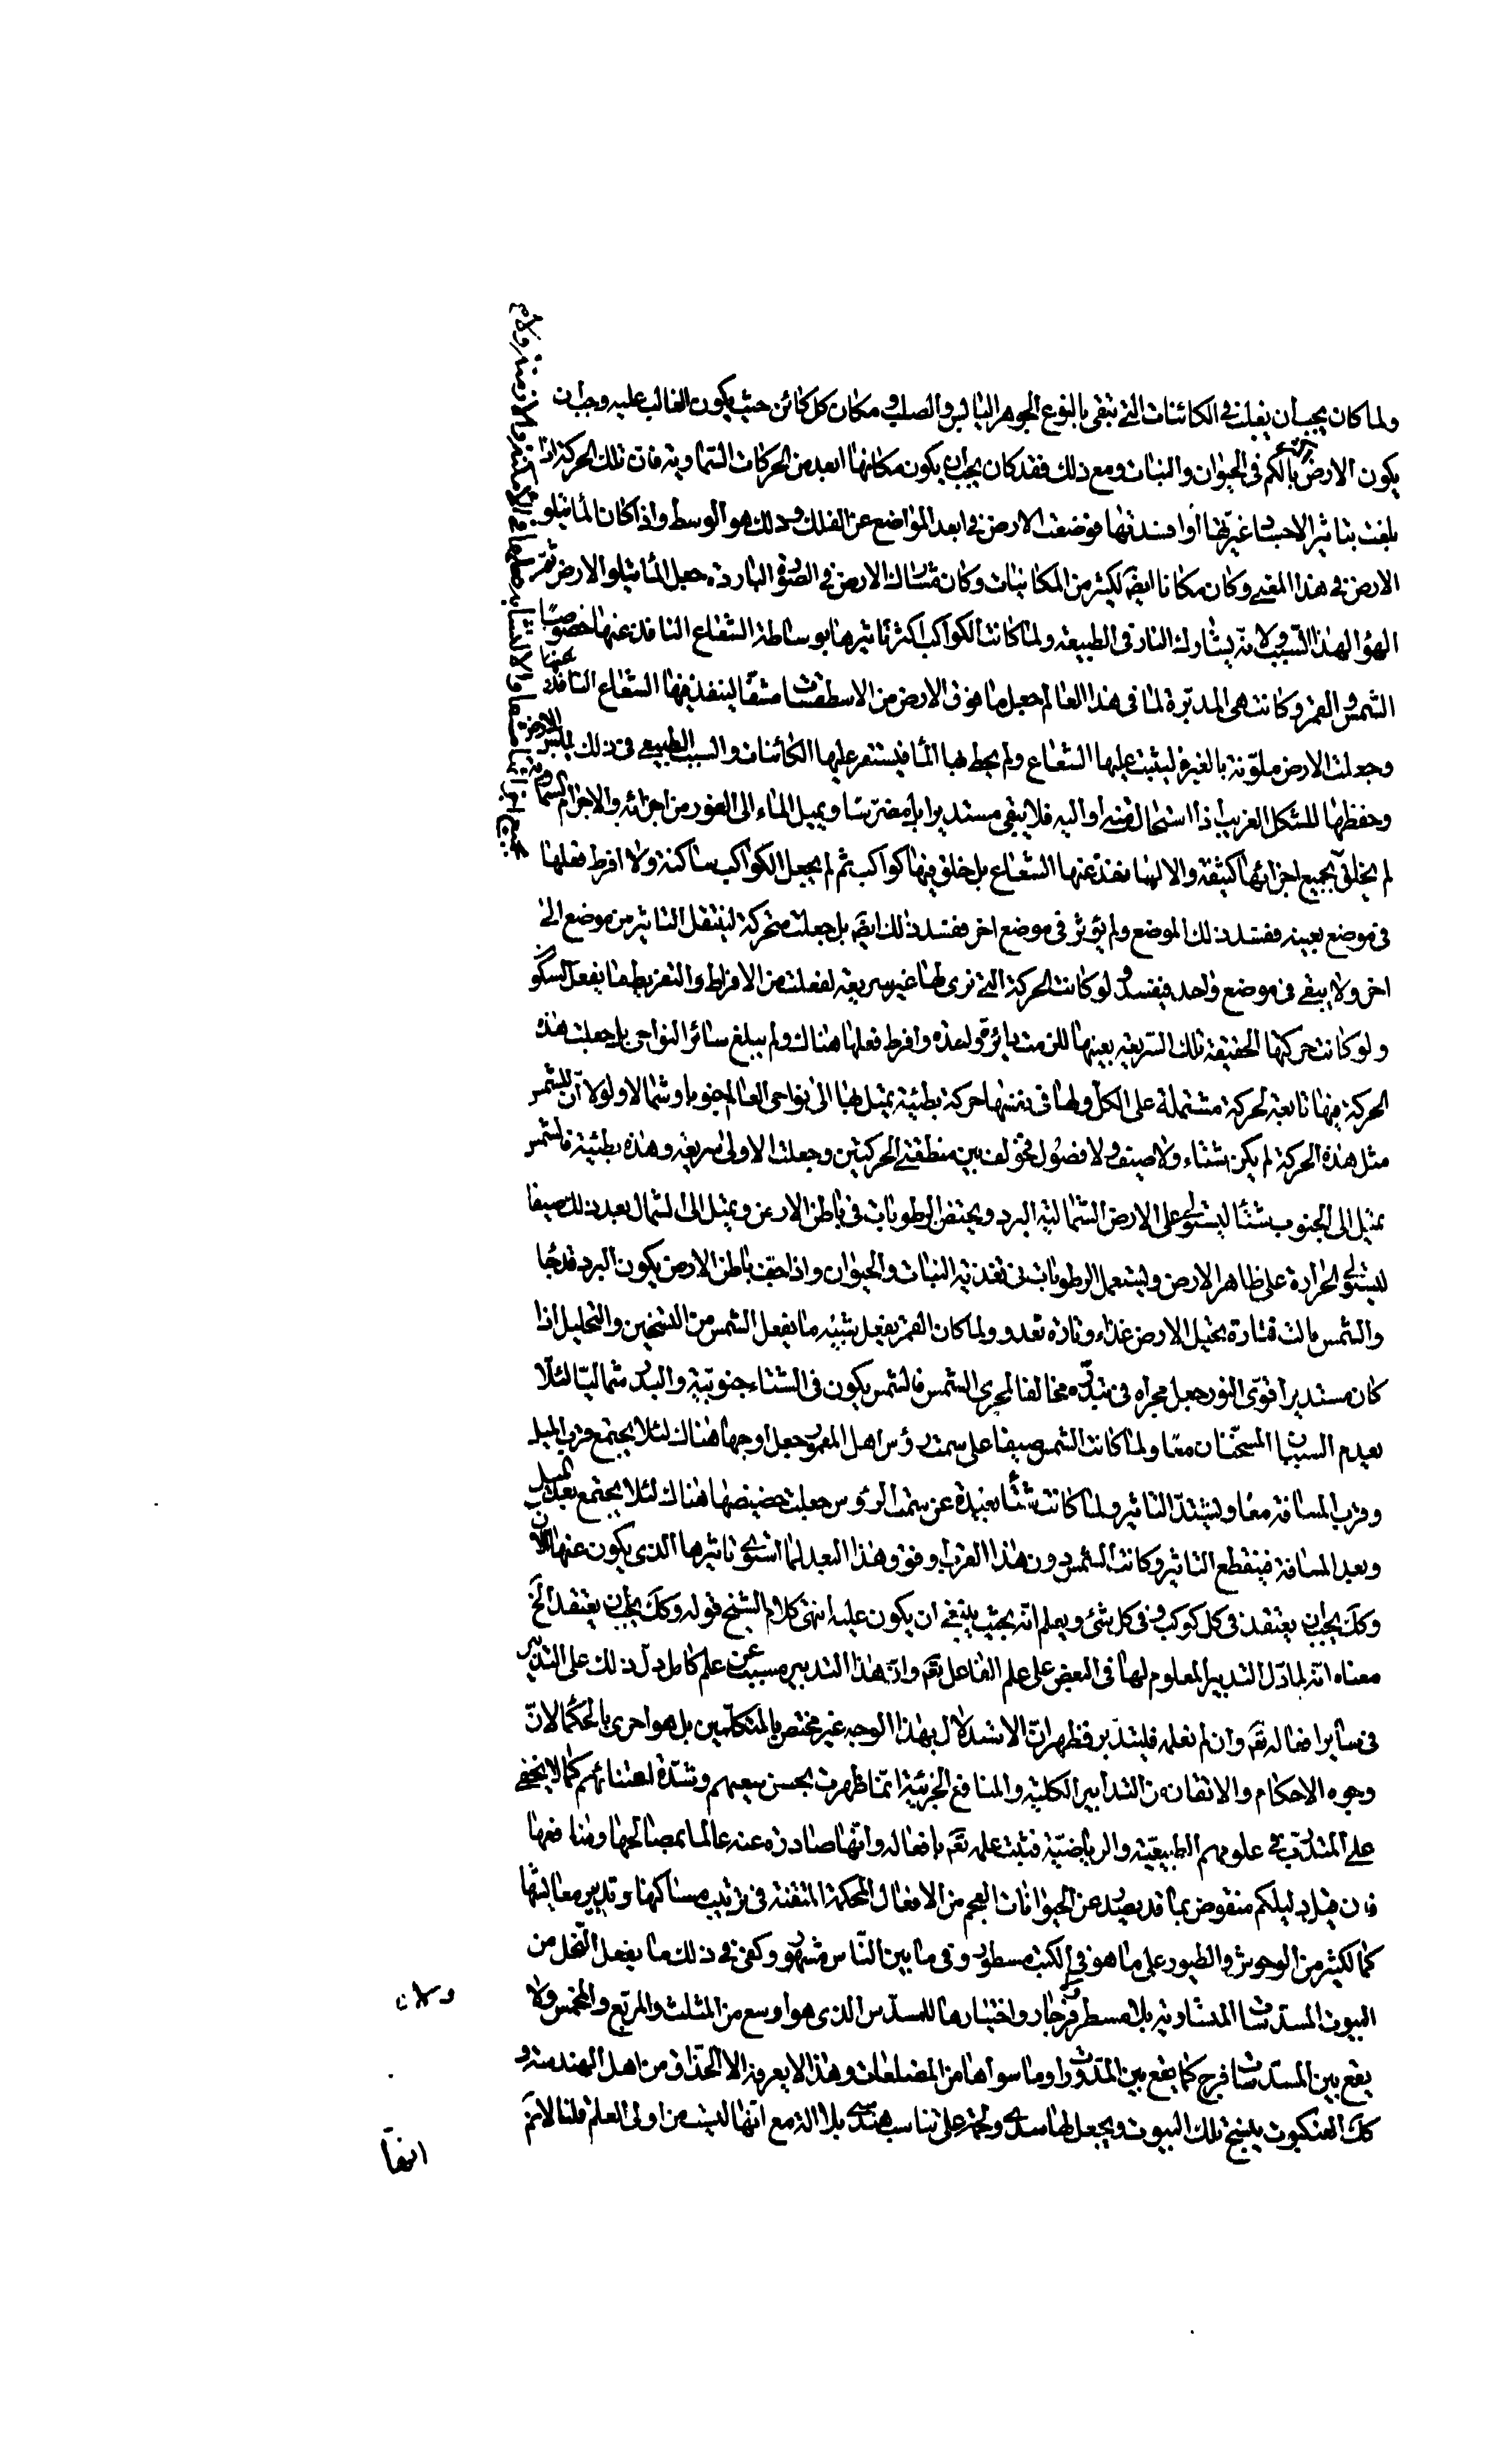 ولما كان يجب أن يغلب في الكائنات التي تبقى بالنوع الجوهر اليابس والصلب و مكان كل كائن حيث يكون الغالب عليه وجب ان
يكون الارض بالكم في الحيوان والنبات ومع ذلك فقد كان يجب ان يكون مكانها ابعد من الحركات السماوية فان تلك الحركة اذا
بلغت بتاثير الاجساد غيرتها أو افسدتها فوضعت الارض في ابعد المواضع عن الفلك وذلك هو الوسط واذا كان الماء يتلو
الارض في هذا المعنى وكان مكانا ايضا لكثير من الكائنات وكان مشارك الارض في الصورة الباردة جعل الماء يتلو الارض ثم
الهواء لهذا السبب ولانه يشارك النار في الطبيعة ولما كانت الكواكب اكثر تاثيرها بوساطة الشعاع النافذ عنها خصوصا
الشمس والقمر وكانت هي المدبرة لما في هذا العالم جعل ما فوق الارض من الاسطقسات مشفا لينفذ فيها الشعاع النافذ عنها
وجعلت الارض ملونة بالغبرة ليثبت عليها الشعاع ولم يحط بها الماء فيستقر عليها الكائنات والسبب الطبيعي في ذلك يبس الارض
وحفظها للشكل الغريب اذا استحال منه او اليه فلا يبقى مستديرا بل مضرسا ويميل الماء الى الغور من اجزائه والاجرام السماوية
لم يخلق بجميع اجزائها كثيفة والا لما نفذ عنها الشعاع بل خلق فيها كواكب ثم لم يجعل الكواكب ساكنة ولا افرط فعلها
في موضع بعينه ففسد ذلك الموضع ولم يؤثر في موضع اخر ففسد ذلك ايضا بل جعلت متحركة لينتقل التاثير من موضع الى
اخر ولا يبقى في موضع واحد فيفسد ولو كانت الحركة التي نرى لها غير سريعة لفعلت من الافراط والتفريط ما يفعل السكون
ولو كانت حركتها الحقيقة تلك السريعة بعينها للزمت دائرة واحدة وافرط فعلها هناك ولم يبلغ سائر النواحي بل جعلت هذه
الحركة فيها تابعة لحركة مشتملة على الكل ولها في نفسها حركة بطيئة يميل بها الى نواحي العالم جنوبا وشمالا ولولا أن للشمس
مثل هذه الحركة لم يكن شتاء ولا صيف ولا فصول فخولف بين منطقتي الحركتين وجعلت الاولى سريعة وهذه بطيئة فالشمس
يميل الى الجنوب شتاء ليستولي على الارض الشمالية البرد ويحتقن الرطوبات في باطن الارض ويميل الى الشمال بعد ذلك صيفا
ليستولي الحرارة على ظاهر الارض وليستعمل الرطوبات في تغذية النبات والحيوان واذا جف باطن الارض يكون البرد قد جاء
والشمس مالت فتارة يحيل الارض غذاء وتارة تغدو ولما كان القمر يفعل شبيه ما يفعل الشمس من التسخين والتحليل اذا
كان مستديرا قوي النور جعل مجراه في تبدره مخالفا لمجرى الشمس فالشمس يكون في الشتاء جنوبية والبدر شماليا لئلا
يعدم السببان المسخنان معا ولما كانت الشمس صيفا على سمت رؤس اهل المعمورة جعل اوجها هناك لئلا يجتمع قرب الميل
وقرب المسافة معا وليشتد التاثير ولما كانت شتاء بعيدة عن سمت الرؤس جعلت حضيضها هناك لئلا يجتمع بعد الميل
وبعد المسافة فينقطع التاثير وكانت الشمس دون هذا القرب او فوق هذا البعد لما استوى تاثيرها الذي يكون عنها الان
وكك يجب ان يعتقد في كل كوكب وفي كل شئ ويعلم انه بحيث ينبغي ان يكون عليه انتهى كلام الشيخ قوله وكك يجب ان يعتقد الخ
معناه انه لما دل التدبير المعلوم لها في البعض على علم الفاعل تع وان هذا التدبير مسبب عن علم كامل دل ذلك على التدبير
في ساير افعاله تع وان لم نعلمه فليتدبر فظهر ان الاستدلال بهذا الوجه غير مختص بالمتكلمين بل هو احرى بالحكماء لان
وجوه الاحكام والاتقان من التدابير الكلية والمنافع الجزئية انما ظهرت بحسن سعيهم وشدة اعتنائهم كما لا يخفى
على المتدرب في علومهم الطبيعية والرياضية فثبت علمه تع بافعاله وانها صادرة عنه عالما بمصالحها ومنافعها
فان قيل دليلكم منقوض بما قد يصدر عن الحيوانات العجم من الافعال المحكمة المتقنة في ترتيب مساكنها وتدبير معايشها
كما لكثير من الوحوش والطيور على ما هو في الكتب مسطور وفي ما بين الناس مشهور وكفى في ذلك ما يفعل النحل من
البيوت المسدسات المتساوية بلا مسطر وفرجار واختيارها للمسدس الذي هو اوسع من المثلث والمربع والمخمس ولا
يقع بين المسدسات فرج كما يقع بين المدورات وما سواها من المضلعات وهذا لا يعرفه الا الحذاق من اهل الهندسة و
كك العنكبوت ينسج تلك البيوت ويجعل لها سدى ولحمة على تناسب هندسي بلا الة مع انها ليست من اولى العلم قلنا لا نم
انها